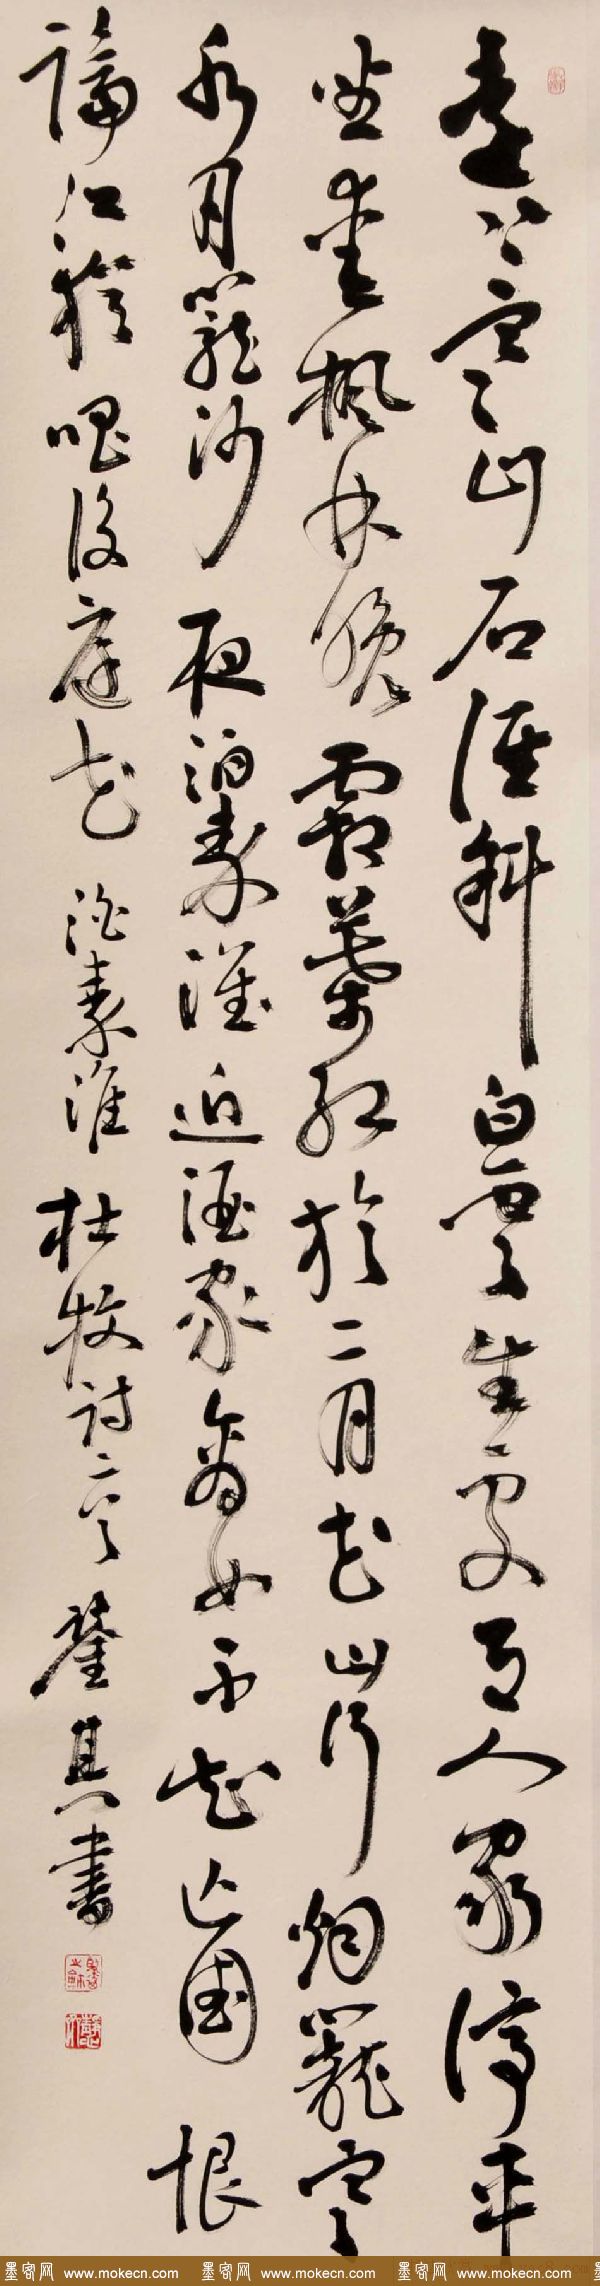 遠上寒山石徑斜白雲生處有人家停車
坐愛楓林晚霜葉紅於二月花山行烟籠寒
水月籠沙夜泊秦淮近酒家商女不知亡國恨
隔江猶唱後庭花泊秦淮杜牧詩二首其書
墨客网 www.mokecn.com 墨客网 www.mokecn.com 墨客网 www.mokecn.com